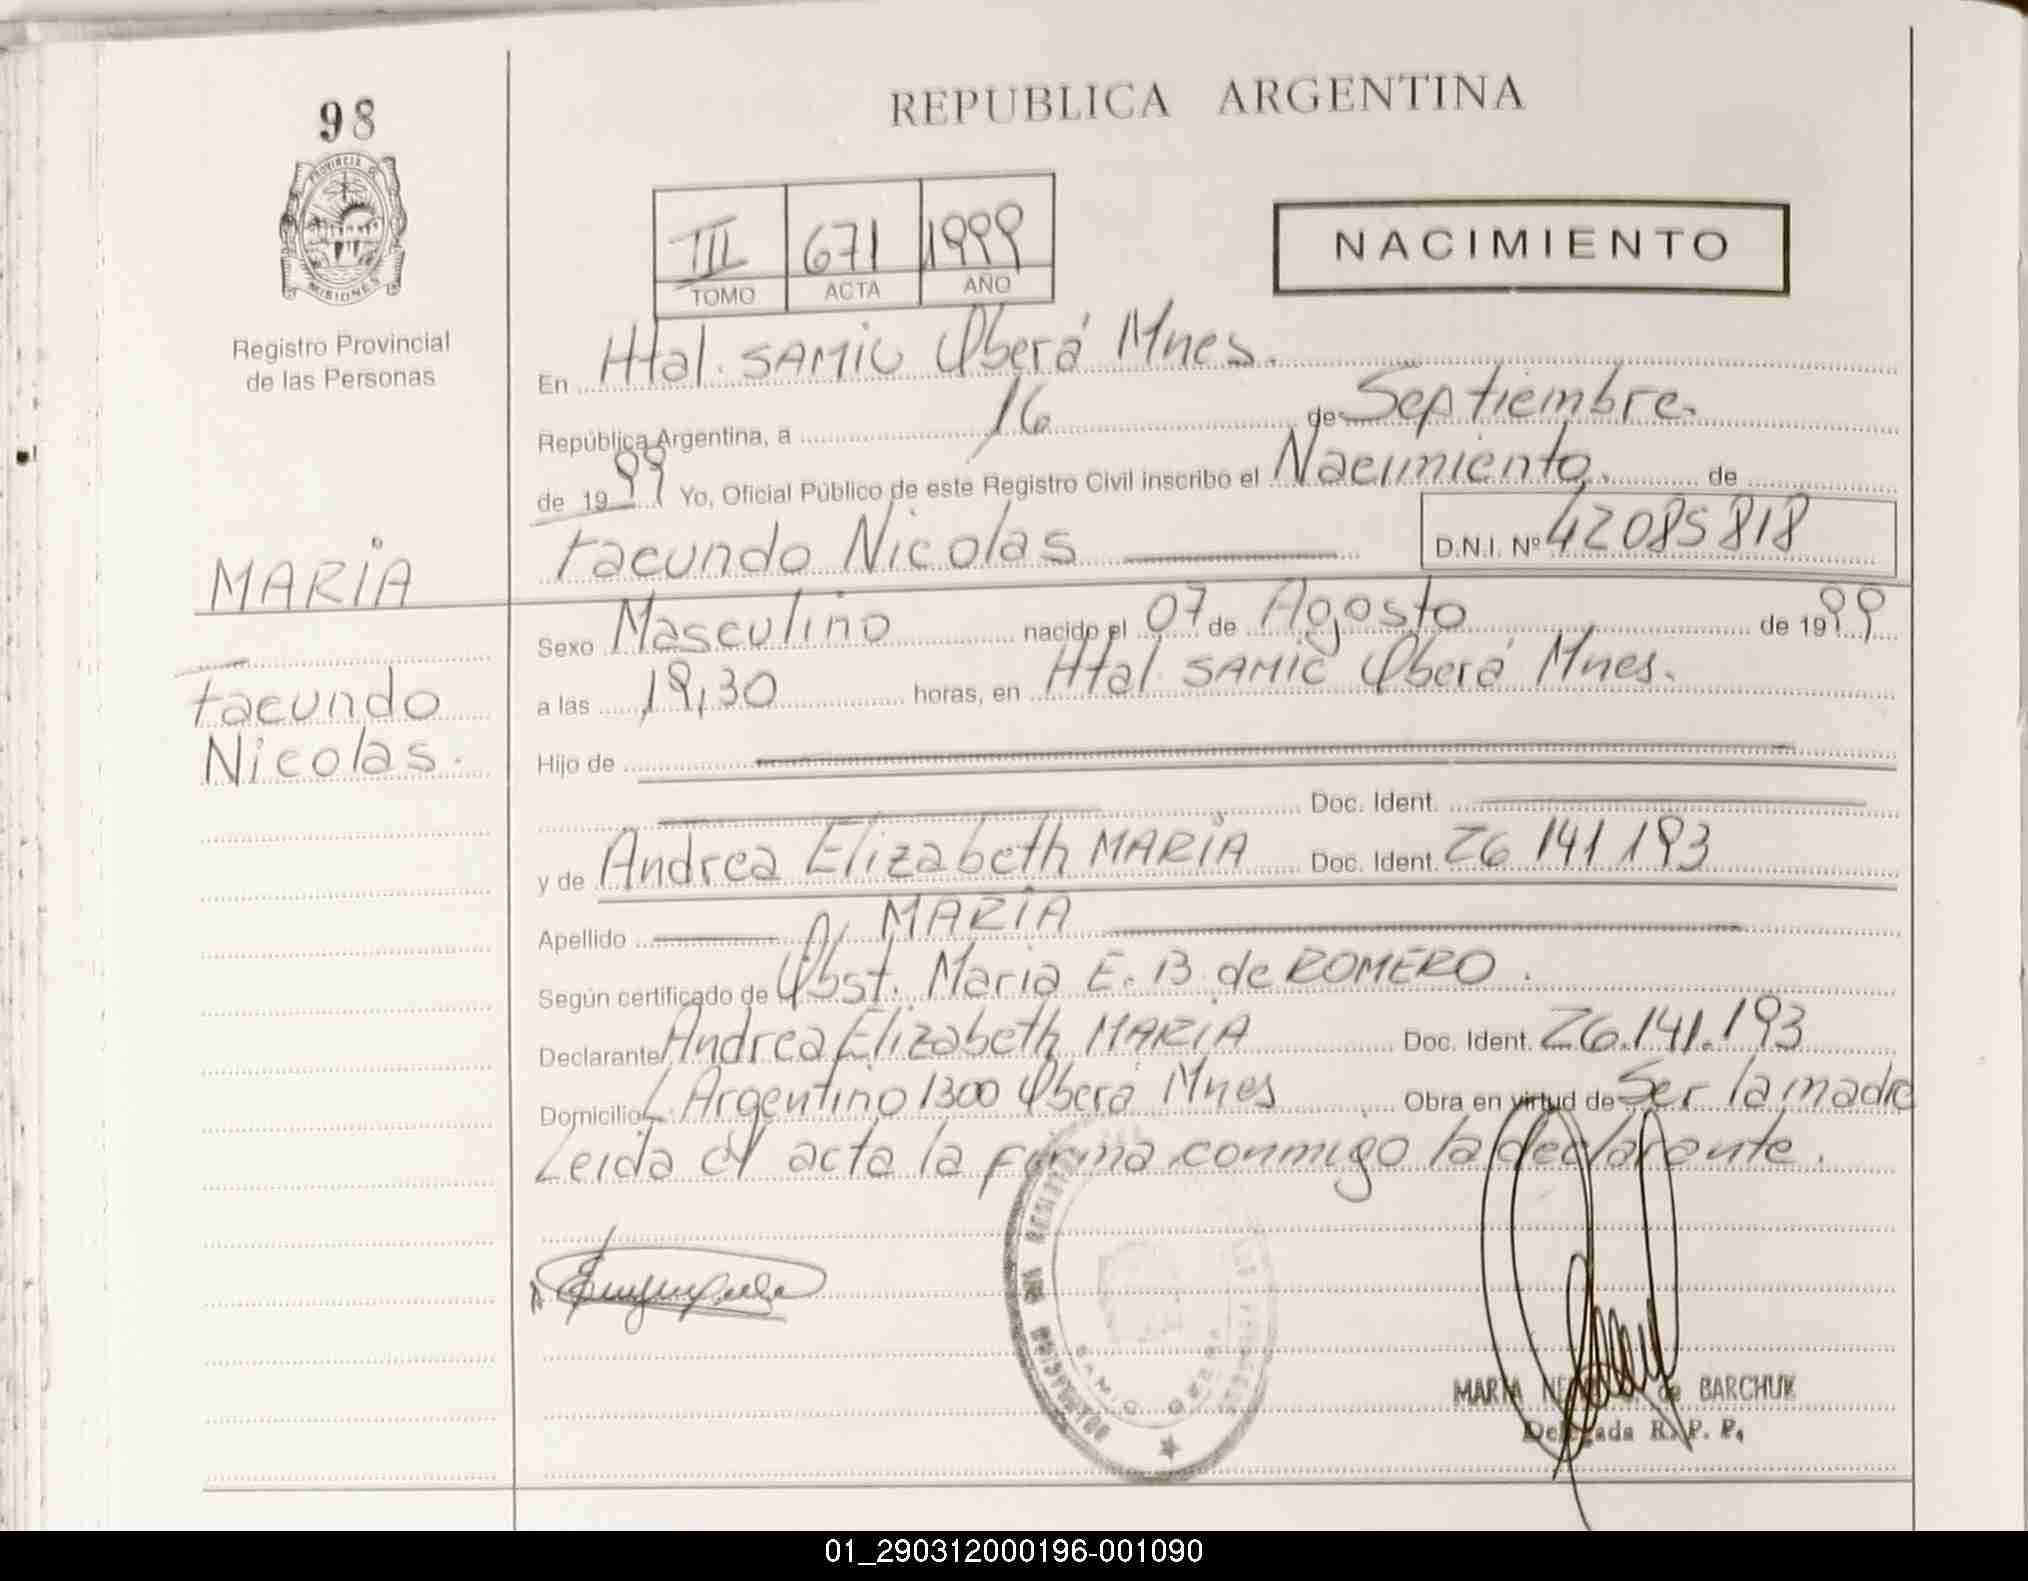 98
REPUBLICA ARGENTINA
PROVINCIA DE
MISIONES
III 671 1999
TOMO ACTA AÑO
NACIMIENTO
Registro Provincial
de las Personas
En Htal. SAMIC Oberá Mnes.
República Argentina, a 16 de Septiembre.
de 1999 Yo, Oficial Público de este Registro Civil inscribo el Nacimiento. de
Facundo Nicolas D.N.I. Nº 42085818
MARIA
Facundo
Nicolas.
Sexo Masculino nacido el 07 de Agosto de 1999
a las 19,30 horas, en Htal SAMIC Oberá Mnes.
Hijo de
Doc. Ident.
y de Andrea Elizabeth MARIA Doc. Ident. 26 141 193
Apellido MARIA
Según certificado de Obst. Maria E. B de ROMERO.
Declarante Andrea Elizabeth MARIA Doc. Ident. 26.141.193
Domicilio L. Argentino 1300 Oberá Mnes Obra en virtud de Ser la madre
Leida el acta la firma conmigo la declarante.
SAMIC OBERA
MARIA de BARCHUK
Delegada R. P. P.
01_290312000196-001090